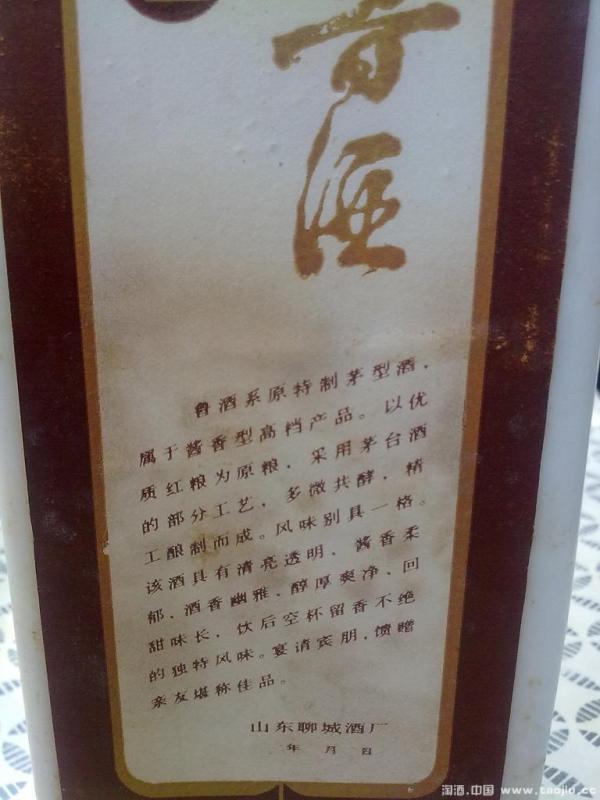 鲁酒
鲁酒系原特制茅型酒，
属于酱香型高档产品。以优
质红粮为原粮，采用茅台酒
的部分工艺，多微共酵，精
工酿制而成。风味别具一格。
该酒具有清亮透明、酱香柔
郁、酒香幽雅、醇厚爽净、回
甜味长，饮后空杯留香不绝
的独特风味。宴请宾朋，馈赠
亲友堪称佳品。
山东聊城酒厂
年 月 日
淘酒.中国 www.taojiu.cc